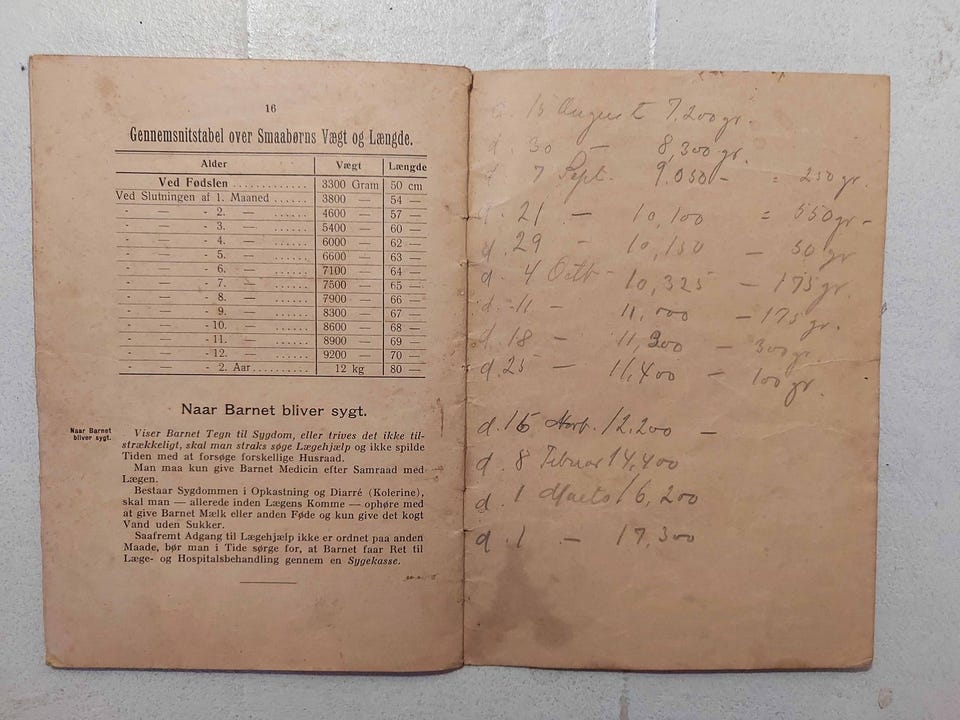 16
Gennemsnitstabel over Smaabørns Vægt og Længde.
Alder Vægt Længde
Ved Fødslen ............. 3300 Gram 50 cm
Ved Slutningen af 1. Maaned ...... 3800 — 54 —
- — - 2. — ...... 4600 — 57 —
- — - 3. — ...... 5400 — 60 —
- — - 4. — ...... 6000 — 62 —
- — - 5. — ...... 6600 — 63 —
- — - 6. — ...... 7100 — 64 —
- — - 7. — ...... 7500 — 65 —
- — - 8. — ...... 7900 — 66 —
- — - 9. — ...... 8300 — 67 —
- — - 10. — ...... 8600 — 68 —
- — - 11. — ...... 8900 — 69 —
- — - 12. — ...... 9200 — 70 —
- — - 2. Aar.......... 12 kg 80 —
Naar Barnet bliver sygt.
Naar Barnet
bliver sygt.
Viser Barnet Tegn til Sygdom, eller trives det ikke til-
strækkeligt, skal man straks søge Lægehjælp og ikke spilde
Tiden med at forsøge forskellige Husraad.
Man maa kun give Barnet Medicin efter Samraad med
Lægen.
Bestaar Sygdommen i Opkastning og Diarré (Kolerine),
skal man — allerede inden Lægens Komme — ophøre med
at give Barnet Mælk eller anden Føde og kun give det kogt
Vand uden Sukker.
Saafremt Adgang til Lægehjælp ikke er ordnet paa anden
Maade, bør man i Tide sørge for, at Barnet faar Ret til
Læge- og Hospitalsbehandling gennem en Sygekasse.
d. 15 August 7,200 gr.
d. 30 — 8,300 gr.
d. 7 Sept. 9.050 — = 250 gr.
d. 21 — 10,100 = 550 gr —
d. 29 — 10,150 — 50 gr
d. 4 Octb — 10,325 — 175 gr.
d. 11 — — 175 gr.
d. 18 — 11,300 — 300 gr.
d. 25 — 11,400 — 100 gr.
d. 12,200 —
d. 8 Februar 14,400
d. 1 Marts 16,200
d. 1 — 17,300